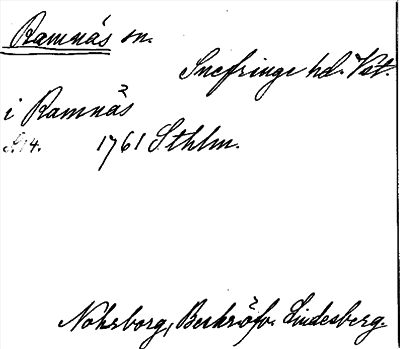 Ramnäs sn.
Snefringe hd. Vst.
i Ramnäs
S. 14. 1761 Sthlm.
Nohrborg, Beskrifv. Lindesberg.